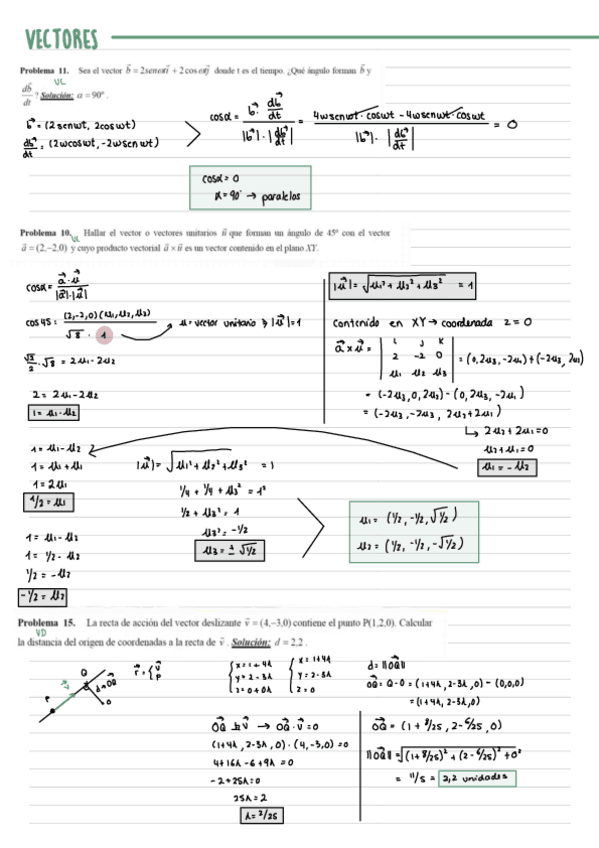 VECTORES
Problema 11. Sea el vector b⃗ = 2senωt i⃗ + 2cosωt j⃗ donde t es el tiempo. ¿Qué ángulo forman b⃗ y
VL
db⃗/dt ? Solución: α = 90º.
b⃗ = (2senwt, 2coswt)
db⃗/dt = (2wcoswt, -2wsenwt)
cosα = (b⃗ · db⃗/dt) / (|b⃗| · |db⃗/dt|) = (4wsenwt·coswt - 4wsenwt·coswt) / (|b⃗| · |db⃗/dt|) = 0
cosα = 0
α = 90° → paralelos
Problema 10. Hallar el vector o vectores unitarios u⃗ que forman un ángulo de 45º con el vector
VL
a⃗ = (2,−2,0) y cuyo producto vectorial a⃗ × u⃗ es un vector contenido en el plano XY.
cosα = (a⃗ · u⃗) / (|a⃗|·|u⃗|)
cos45 = (2,-2,0)(u1,u2,u3) / (√8 · 1) u = vector unitario → |u⃗| = 1
√2/2 · √8 = 2u1 - 2u2
2 = 2u1 - 2u2
1 = u1 - u2
|u⃗| = √(u1² + u2² + u3²) = 1
Contenido en XY → coordenada z = 0
a⃗ x u⃗ = | i j k |
| 2 -2 0 | = (0, 2u3, -2u1) + (-2u3, 2u2)
| u1 u2 u3 |
= (-2u3, 0, 2u2) - (0, 2u3, -2u1)
= (-2u3, -2u3, 2u2 + 2u1)
↳ 2u2 + 2u1 = 0
u2 + u1 = 0
u1 = -u2
1 = u1 - u2
1 = u1 + u1
1 = 2u1
1/2 = u1
1 = u1 - u2
1 = 1/2 - u2
1/2 = -u2
-1/2 = u2
|u⃗| = √(u1² + u2² + u3²) = 1
1/4 + 1/4 + u3² = 1²
1/2 + u3² = 1
u3² = -1/2
u3 = ± √1/2
u1 = (1/2, -1/2, √1/2)
u2 = (1/2, -1/2, -√1/2)
Problema 15. La recta de acción del vector deslizante v⃗ = (4,−3,0) contiene el punto P(1,2,0). Calcular
VD
la distancia del origen de coordenadas a la recta de v⃗. Solución: d = 2,2.
P
v⃗
Q
d = OQ
O
r⃗ = { v⃗
P
x = 1 + 4λ
y = 2 - 3λ
z = 0 + 0λ
x = 1 + 4λ
y = 2 - 3λ
z = 0
d = ||OQ||
OQ = Q - O = (1+4λ, 2-3λ, 0) - (0,0,0)
= (1+4λ, 2-3λ, 0)
OQ ⊥ v⃗ → OQ · v⃗ = 0
(1+4λ, 2-3λ, 0) · (4, -3, 0) = 0
4 + 16λ - 6 + 9λ = 0
-2 + 25λ = 0
25λ = 2
λ = 2/25
OQ = (1 + 8/25, 2 - 6/25, 0)
||OQ|| = √((1 + 8/25)² + (2 - 6/25)² + 0²
= 11/5 = 2,2 unidades